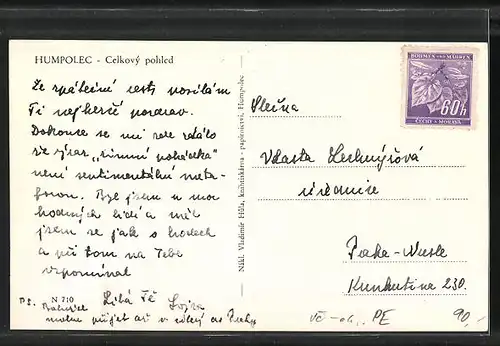 HUMPOLEC - Celkový pohled
Ze zpáteční cesty posílám
Ti nejhezčí pozdrav.
Dokonce se mi zde zdálo
že výraz „zimní pohádka"
není sentimentální meta-
forou. Byl jsem u moc
hodných lidí a měl
jsem se jak o hodech
a při tom na Tebe
vzpomínal
Líbá Tě
P.S.
N 710
Nákl. Vladimír Hůla, knihtiskárna - papírnictví, Humpolec
BÖHMEN UND MÄHREN
60h
ČECHY A MORAVA
Slečna
Vlasta
úřednice
Praha-Nusle
Kunhutina 230.
PE
90,-